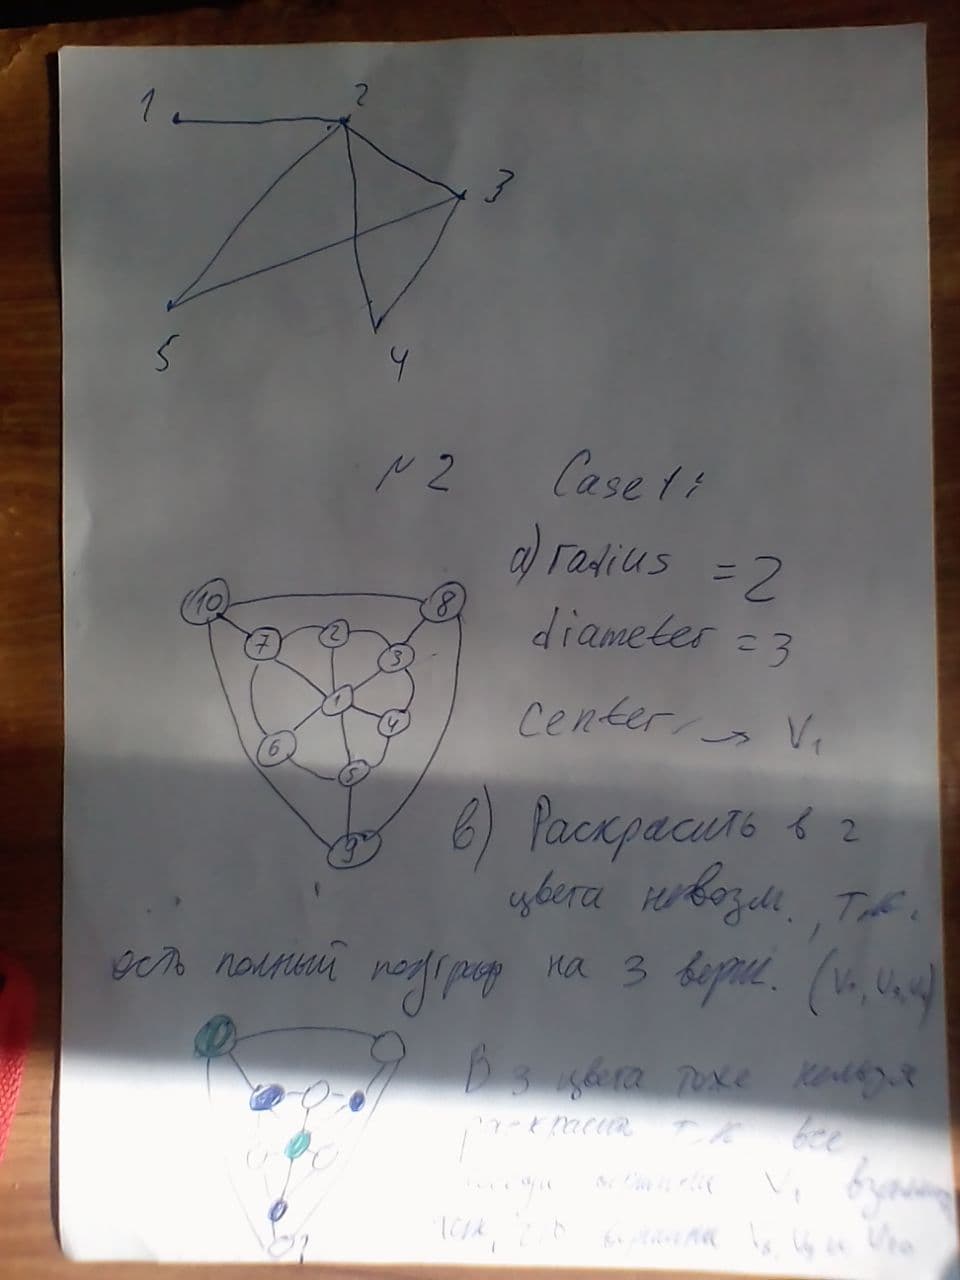 1 2
3
5 4
№2 Case 1:
a) radius = 2
diameter = 3
center → V₁
10 8
7 2 3
1
6 4
5
9
в) Раскрасить в 2
цвета невозм., т.к.
есть полный подграф на 3 верш. (V₁, V₃, V₄)
В 3 цвета тоже нельзя
раскрасить т.к все
V₁